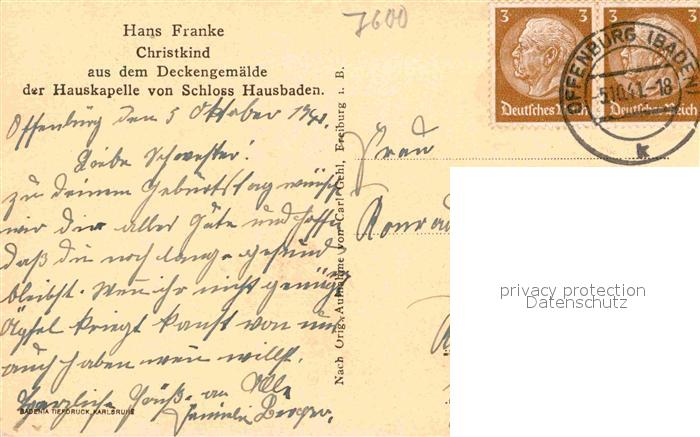 Hans Franke
Christkind
aus dem Deckengemälde
der Hauskapelle von Schloss Hausbaden.
7600
3 3
Deutsches Reich Deutsches Reich
OFFENBURG (BADEN)
5.10.41.-18
k
Offenburg den 5 Oktober 1941.
Liebe Schwester!
zu deinem Geburtstag wünsch
wir dir alles Gute und hoffe
daß du noch lange gesund
bleibst. Wen ihr nicht genüg
Äpfel kriegt kanst von uns
auch haben wen willst.
Herzliche Grüße an Alle
Familie Berger.
Frau
Konrad
Nach Orig.-Aufnahme von Carl Gehl, Freiburg i. B.
BADENIA TIEFDRUCK, KARLSRUHE
privacy protection
Datenschutz